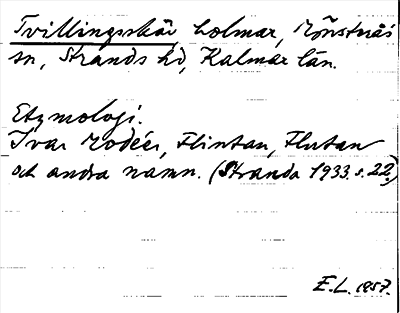 Tvillingsskär, holmar, Mönsterås
sn, Stranda hd, Kalmar län.
Etymologi.
Ivar Modéer, Flintan, Flutan
och andra namn. (Stranda 1933. s. 22.)
E.L. 1957.